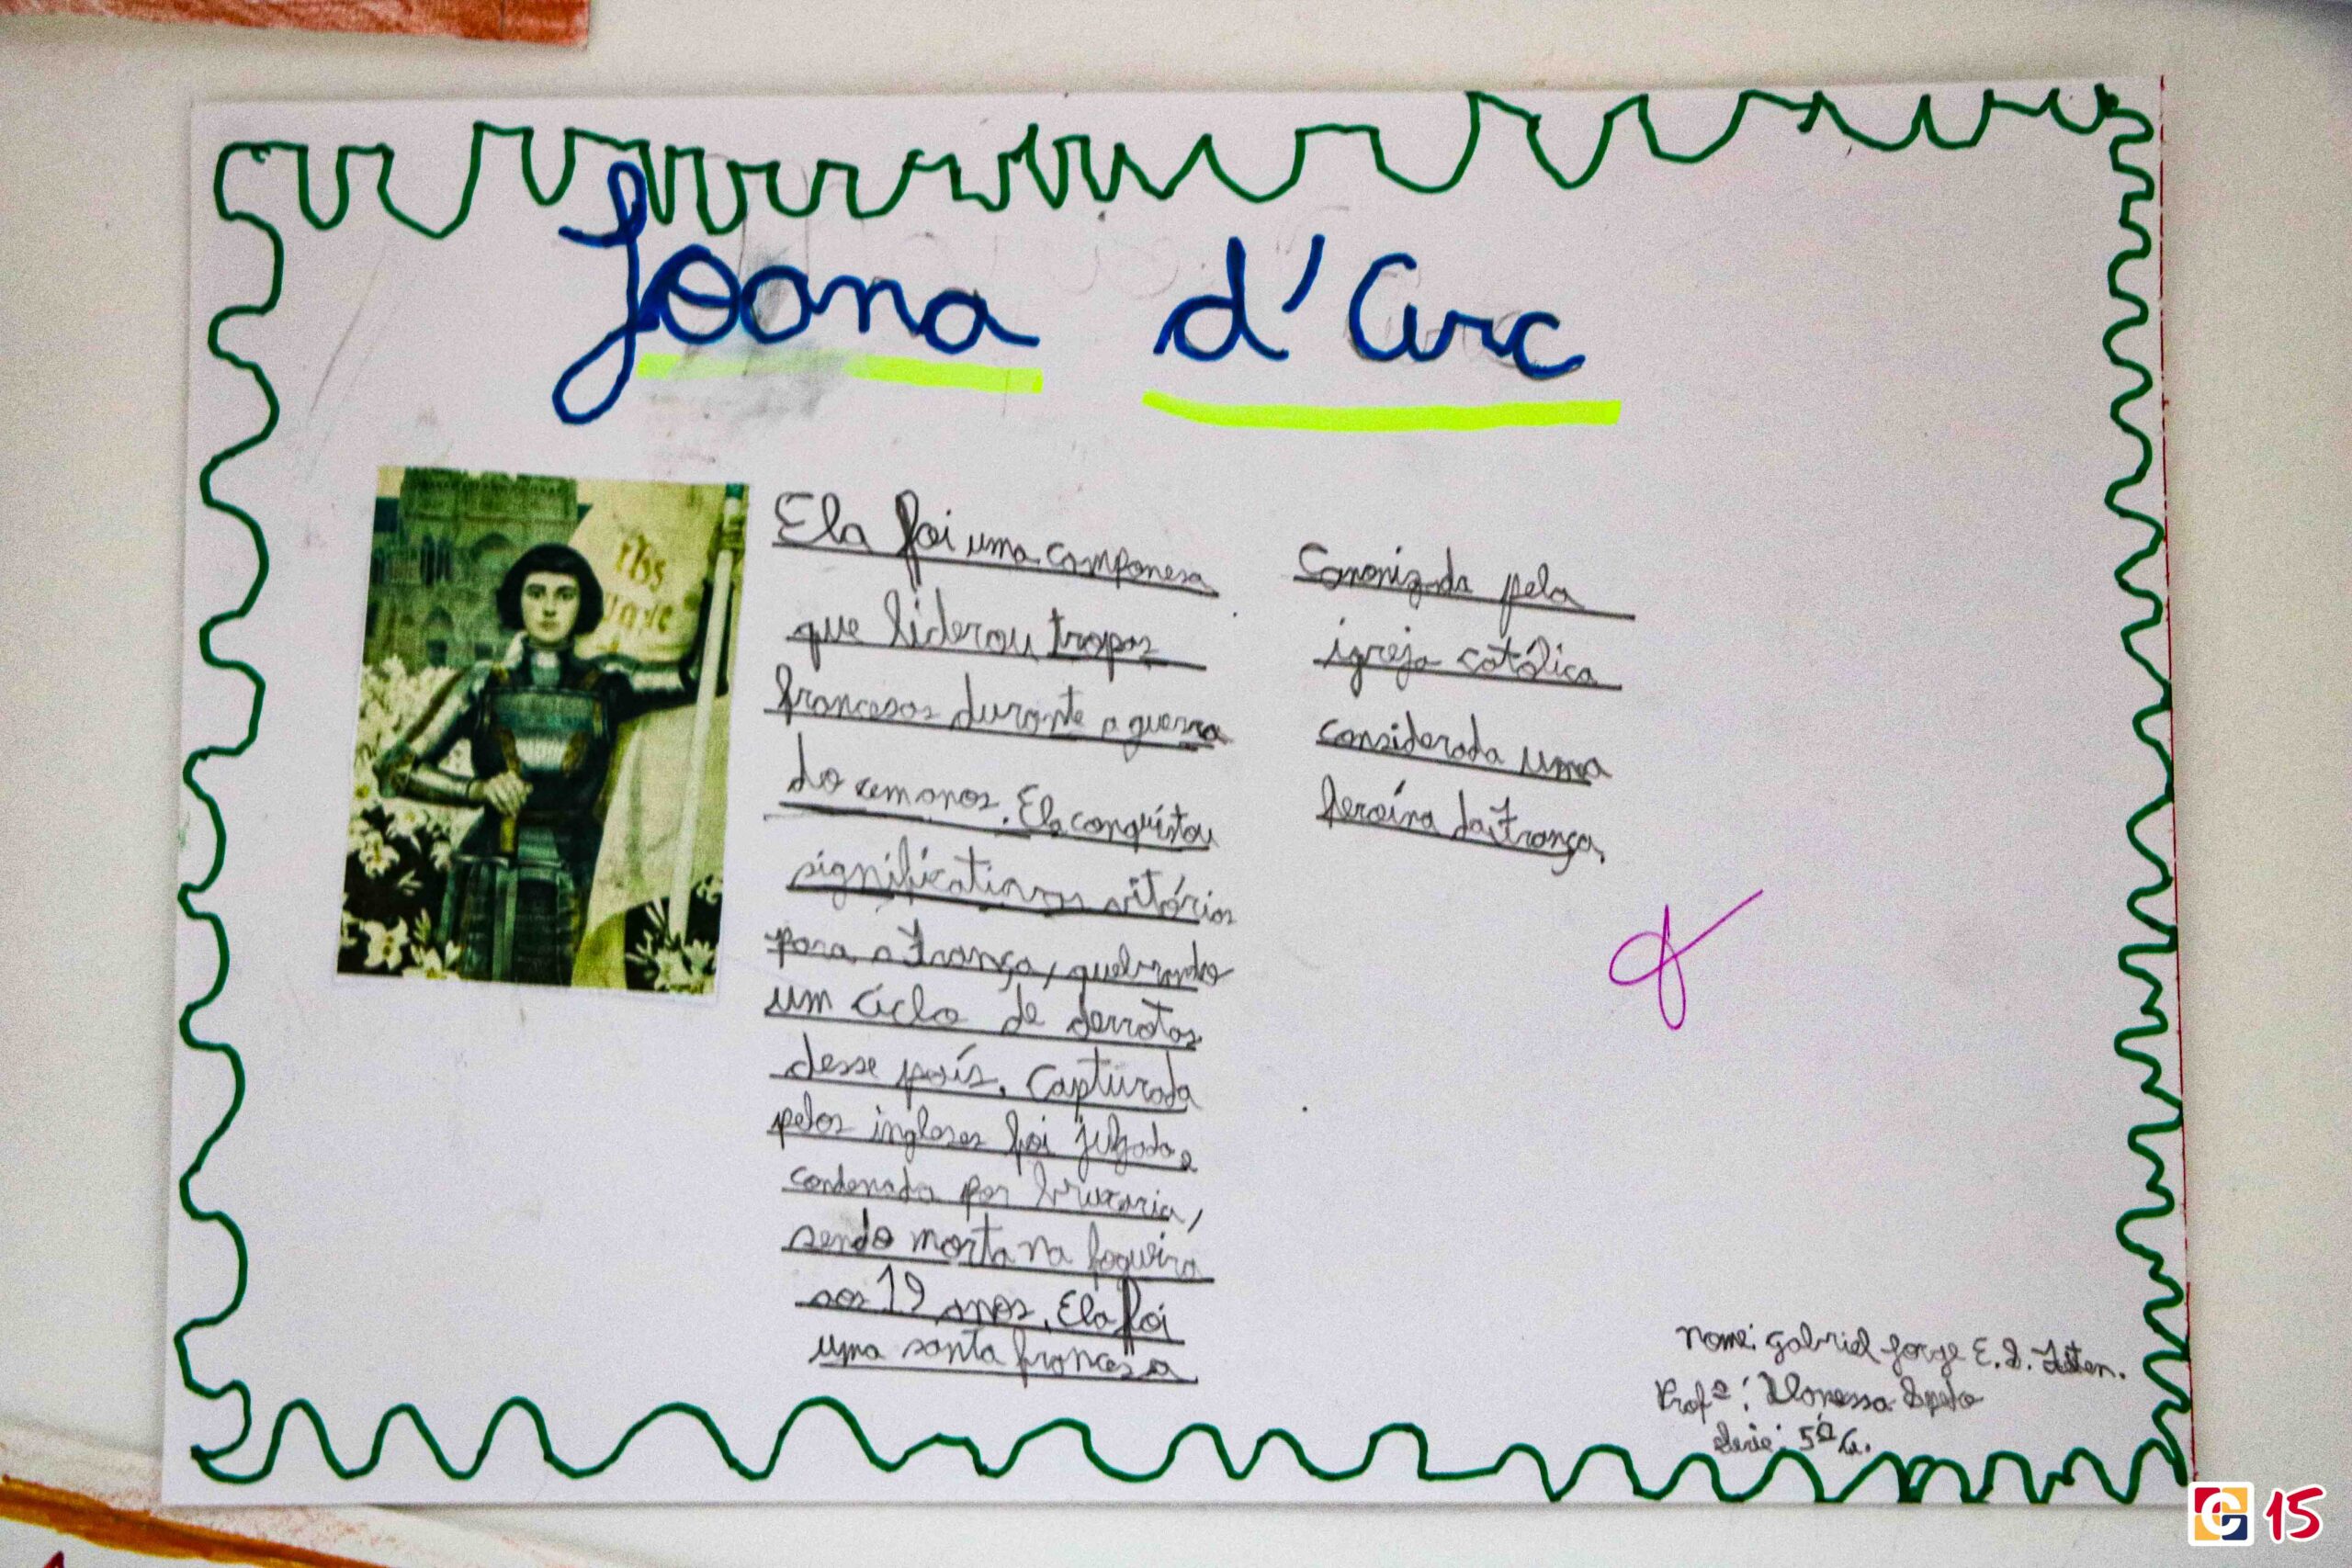 Joana d'Arc
Ela foi uma camponesa
que liderou tropas
francesas durante a guerra
do cem anos. Ela conquistou
significativas vitórias
para a França, quebrando
um ciclo de derrotas
desse país. Capturada
pelos ingleses foi julgada e
condenada por bruxaria,
sendo morta na fogueira
aos 19 anos. Ela foi
uma santa francesa
Canonizada pela
igreja católica
considerada uma
heroína da França.
Nome: Gabriel Jorge E. S.
Profª:
Série: 5º
15